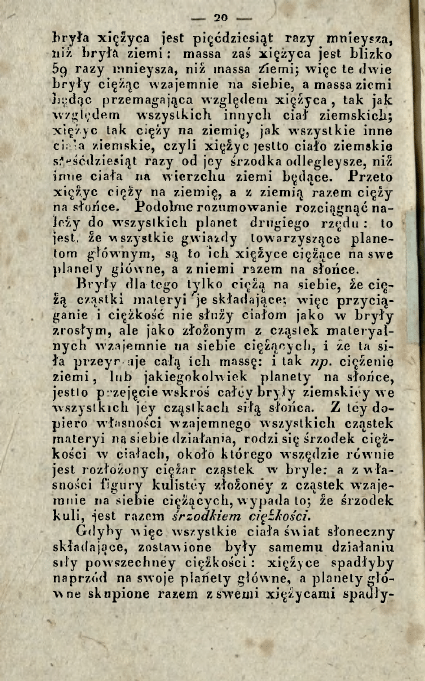 — 20 —
bryła xiężyca jest pięćdziesiąt razy mnieysza,
niż bryła ziemi: massa zaś xiężyca jest blizko
59 razy mnieysza, niż massa ziemi; więc te dwie
bryły ciężąc wzajemnie na siebie, a massa ziemi
będąc przemagająca względem xiężyca, tak jak
względem wszystkich innych ciał ziemskich;
xiężyc tak cięży na ziemię, jak wszystkie inne
ciała ziemskie, czyli xiężyc jestto ciało ziemskie
sześćdziesiąt razy od jey śrzodka odlegleysze, niż
inne ciała na wierzchu ziemi będące. Przeto
xiężyc cięży na ziemię, a z ziemią razem cięży
na słońce. Podobne rozumowanie rozciągnąć na-
leży do wszystkich planet drugiego rzędu: to
jest, że wszystkie gwiazdy towarzyszące plane-
tom głównym, są to ich xiężyce ciężące na swe
planety główne, a z niemi razem na słońce.
Bryły dla tego tylko ciężą na siebie, że cię-
żą cząstki materyi je składające; więc przycią-
ganie i ciężkość nie służy ciałom jako w bryły
zrosłym, ale jako złożonym z cząstek materyal-
nych wzajemnie na siebie ciężących, i że ta si-
ła przeymuje całą ich massę: i tak np. ciężenie
ziemi, lub jakiegokolwiek planety na słońce,
jestto przejęcie wskróś całey bryły ziemskiey we
wszystkich jey cząstkach siłą słońca. Z tey do-
piero własności wzajemnego wszystkich cząstek
materyi na siebie działania, rodzi się śrzodek cięż-
kości w ciałach, około którego wszędzie równie
jest rozłożony ciężar cząstek w bryle: a z wła-
sności figury kulistéy złożoney z cząstek wzaje-
mnie na siebie ciężących, wypada to; że śrzodek
kuli, jest razem śrzodkiem ciężkości.
Gdyby więc wszystkie ciała świat słoneczny
składające, zostawione były samemu działaniu
siły powszechney ciężkości: xiężyce spadłyby
naprzód na swoje planety główne, a planety głó-
wne skupione razem z swemi xiężycami spadły-